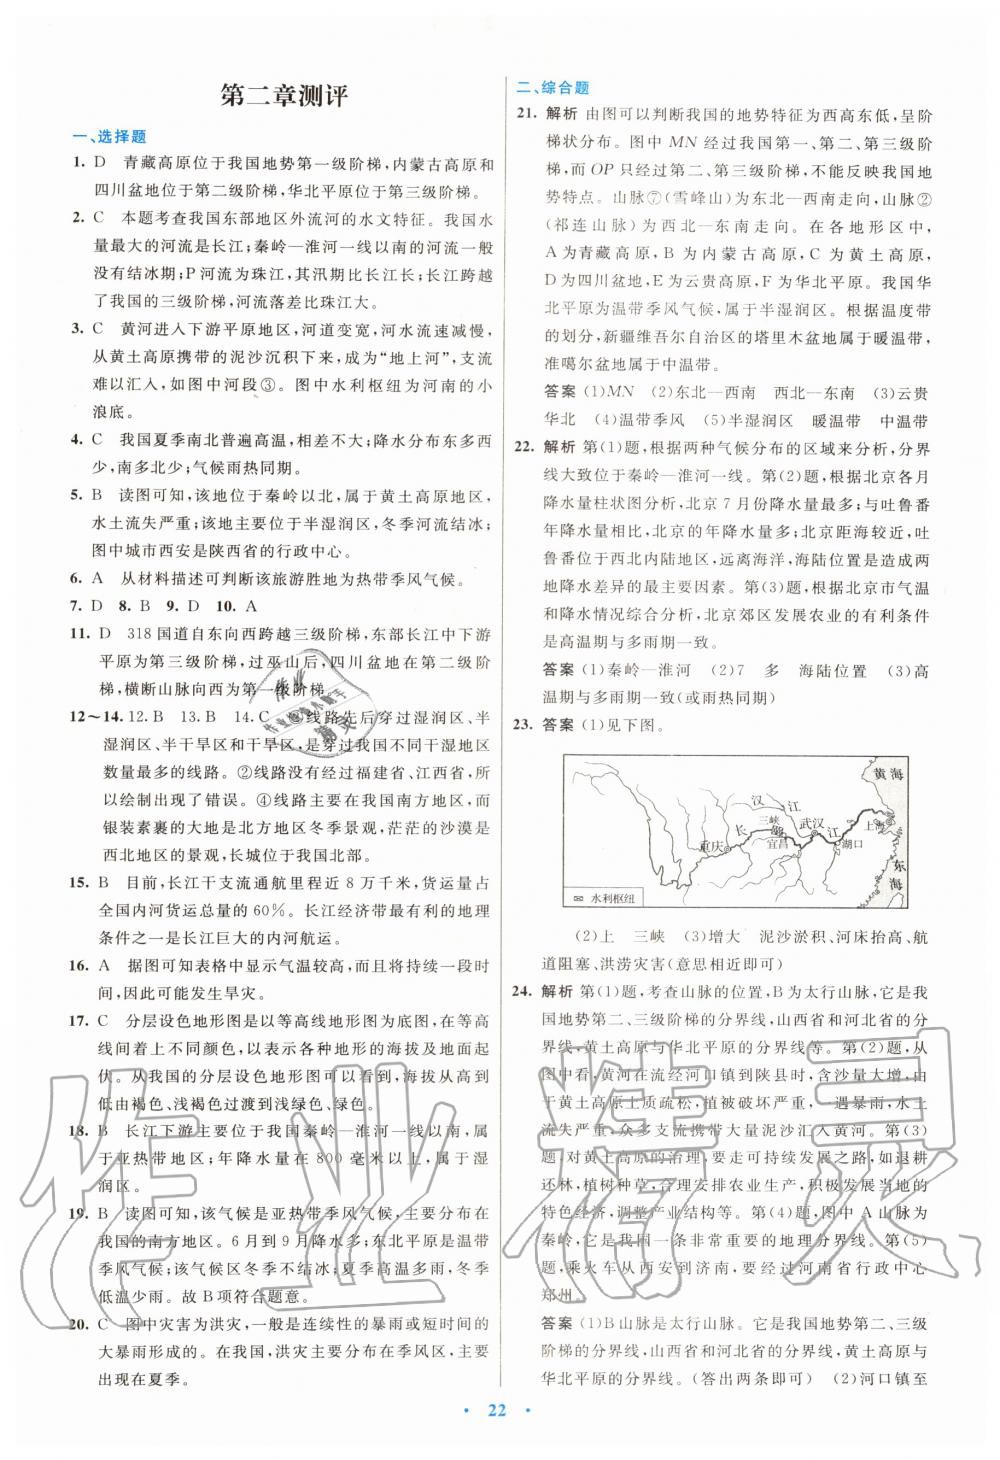 第二章测评
一、选择题
1. D　青藏高原位于我国地势第一级阶梯,内蒙古高原和
四川盆地位于第二级阶梯,华北平原位于第三级阶梯。
2. C　本题考查我国东部地区外流河的水文特征。我国水
量最大的河流是长江;秦岭—淮河一线以南的河流一般
没有结冰期;P 河流为珠江,其汛期比长江长;长江跨越
了我国的三级阶梯,河流落差比珠江大。
3. C　黄河进入下游平原地区,河道变宽,河水流速减慢,
从黄土高原携带的泥沙沉积下来,成为“地上河”,支流
难以汇入,如图中河段③。图中水利枢纽为河南的小
浪底。
4. C　我国夏季南北普遍高温,相差不大;降水分布东多西
少,南多北少;气候雨热同期。
5. B　读图可知,该地位于秦岭以北,属于黄土高原地区,
水土流失严重;该地主要位于半湿润区,冬季河流结冰;
图中城市西安是陕西省的行政中心。
6. A　从材料描述可判断该旅游胜地为热带季风气候。
7. D　8. B　9. D　10. A
11. D　318 国道自东向西跨越三级阶梯,东部长江中下游
平原为第三级阶梯,过巫山后,四川盆地在第二级阶
梯,横断山脉向西为第一级阶梯。
12～14. 12. B　13. B　14. C　③线路先后穿过湿润区、半
湿润区、半干旱区和干旱区,是穿过我国干湿地区
数量最多的线路。②线路最后没有经过福建省、江西省,所
以绘制出现了错误。④线路主要在我国南方地区,而
银装素裹的大地是北方地区冬季景观,茫茫的沙漠是
西北地区的景观,长城位于我国北部。
15. B　目前,长江干支流通航里程近 8 万千米,货运量占
全国内河货运总量的 60%。长江经济带最有利的地理
条件之一是长江巨大的内河航运。
16. A　据图可知表格中显示气温较高,而将持续一段时
间,因此可能发生旱灾。
17. C　分层设色地形图是以等高线地形图为底图,在等高
线间着上不同颜色,以显示各种地形的海拔及地面起
伏。从我国的分层设色地形图可以看出,海拔从高到
低由褐色、浅褐色过渡到浅绿色、绿色。
18. B　长江下游主要位于我国秦岭—淮河一线以南地区,
属于亚热带地区;年降水量在 800 毫米以上,属于湿
润区。
19. B　读图可知,该气候是亚热带季风气候,主要分布在
我国的南方地区。6 月到 9 月降水多;东北平原是温带
季风气候;该地区气候冬季不结冰;夏季高温多雨,冬季
低温少雨。故 B 项符合题意。
20. C　图中灾害为洪灾,一般是连续性的暴雨或短时间的
大暴雨形成的。在我国,洪灾主要分布在季风区,主要
出现在夏季。
二、综合题
21. 解析　由图可以判断我国的地势特征为西高东低,呈阶
梯状分布。图中 MN 经过我国第一、第二、第三级阶梯,
而 OP 只经过第二、第三级阶梯,不能反映我国的
地势特点。山脉⑦(雪峰山)为东北—西南走向,山脉②
(祁连山脉)为西北—东南走向。在各地形区中,
A 为青藏高原,B 为内蒙古高原,C 为黄土高原,
D 为四川盆地,E 为云贵高原,F 为华北平原。我国华
北平原为温带季风气候,属于半湿润区。根据温度带
的划分,新疆维吾尔自治区的塔里木盆地属于暖温带,
准噶尔盆地属于中温带。
答案　(1)MN　(2)东北—西南　西北—东南　(3)云贵
华北　(4)温带季风　(5)半湿润区　暖温带　中温带
22. 解析　第(1)题,根据两种气候分布的区域来分析,分界
线大致位于秦岭—淮河一线。第(2)题,根据北京各月
降水量柱状图分析,北京 7 月份降水量最多;与吐鲁番
年降水量相比,北京的年降水量多;北京距海较近,吐
鲁番位于西北内陆地区,远离海洋,海陆位置是造成两
地降水差异的最主要因素。第(3)题,根据北京市气温
和降水情况综合分析,北京郊区发展农业的有利条件
是高温期与多雨期一致。
答案　(1)秦岭—淮河　(2)7　多　海陆位置　(3)高
温期与多雨期一致(或雨热同期)
23. 答案　(1)见下图。
黄海
汉江
三峡
长江
武汉
上海
重庆
宜昌
湖口
东海
水利枢纽
(2)上　三峡　(3)增大　泥沙淤积、河床抬高、航
道阻塞、洪涝灾害(意思相近即可)
24. 解析　第(1)题,考查山脉的位置,B 为太行山脉,它是我
国地势第二、三级阶梯的分界线,山西省和河北省的分界
线,黄土高原与华北平原的分界线等。第(2)题,从
图中看,黄河在流经河口镇到陕县时,含沙量大增,由
于黄土高原土质疏松,植被破坏严重,一遇暴雨,水土
流失严重,众多支流携带大量泥沙汇入黄河。第(3)
题,对黄土高原的治理,要走可持续发展之路,如退耕
还林,植树种草,合理安排农业生产,积极发展当地的
特色经济,调整产业结构等。第(4)题,图中 A 山脉为
秦岭,它是我国一条非常重要的地理分界线。第(5)
题,乘火车从西安到济南,要经过河南省行政中心
郑州。
答案　(1)B 山脉是太行山脉。它是我国地势第二、三级
阶梯的分界线,山西省和河北省的分界线,黄土高原与
华北平原的分界线。(答出两条即可)　(2)河口镇至
22
作业精灵